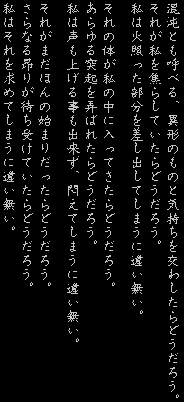 混沌とも呼べる、異形のものと気持ちを交わしたらどうだろう。
それが私を焦らしていたらどうだろう。
私は火照った部分を差し出してしまうに違い無い。
それの体が私の中に入ってきたらどうだろう。
あらゆる突起を弄ばれたらどうだろう。
私は声も上げる事も出来ず、悶えてしまうに違い無い。
それがまだほんの始まりだったらどうだろう。
さらなる昂りが待ち受けていたらどうだろう。
私はそれを求めてしまうに違い無い。